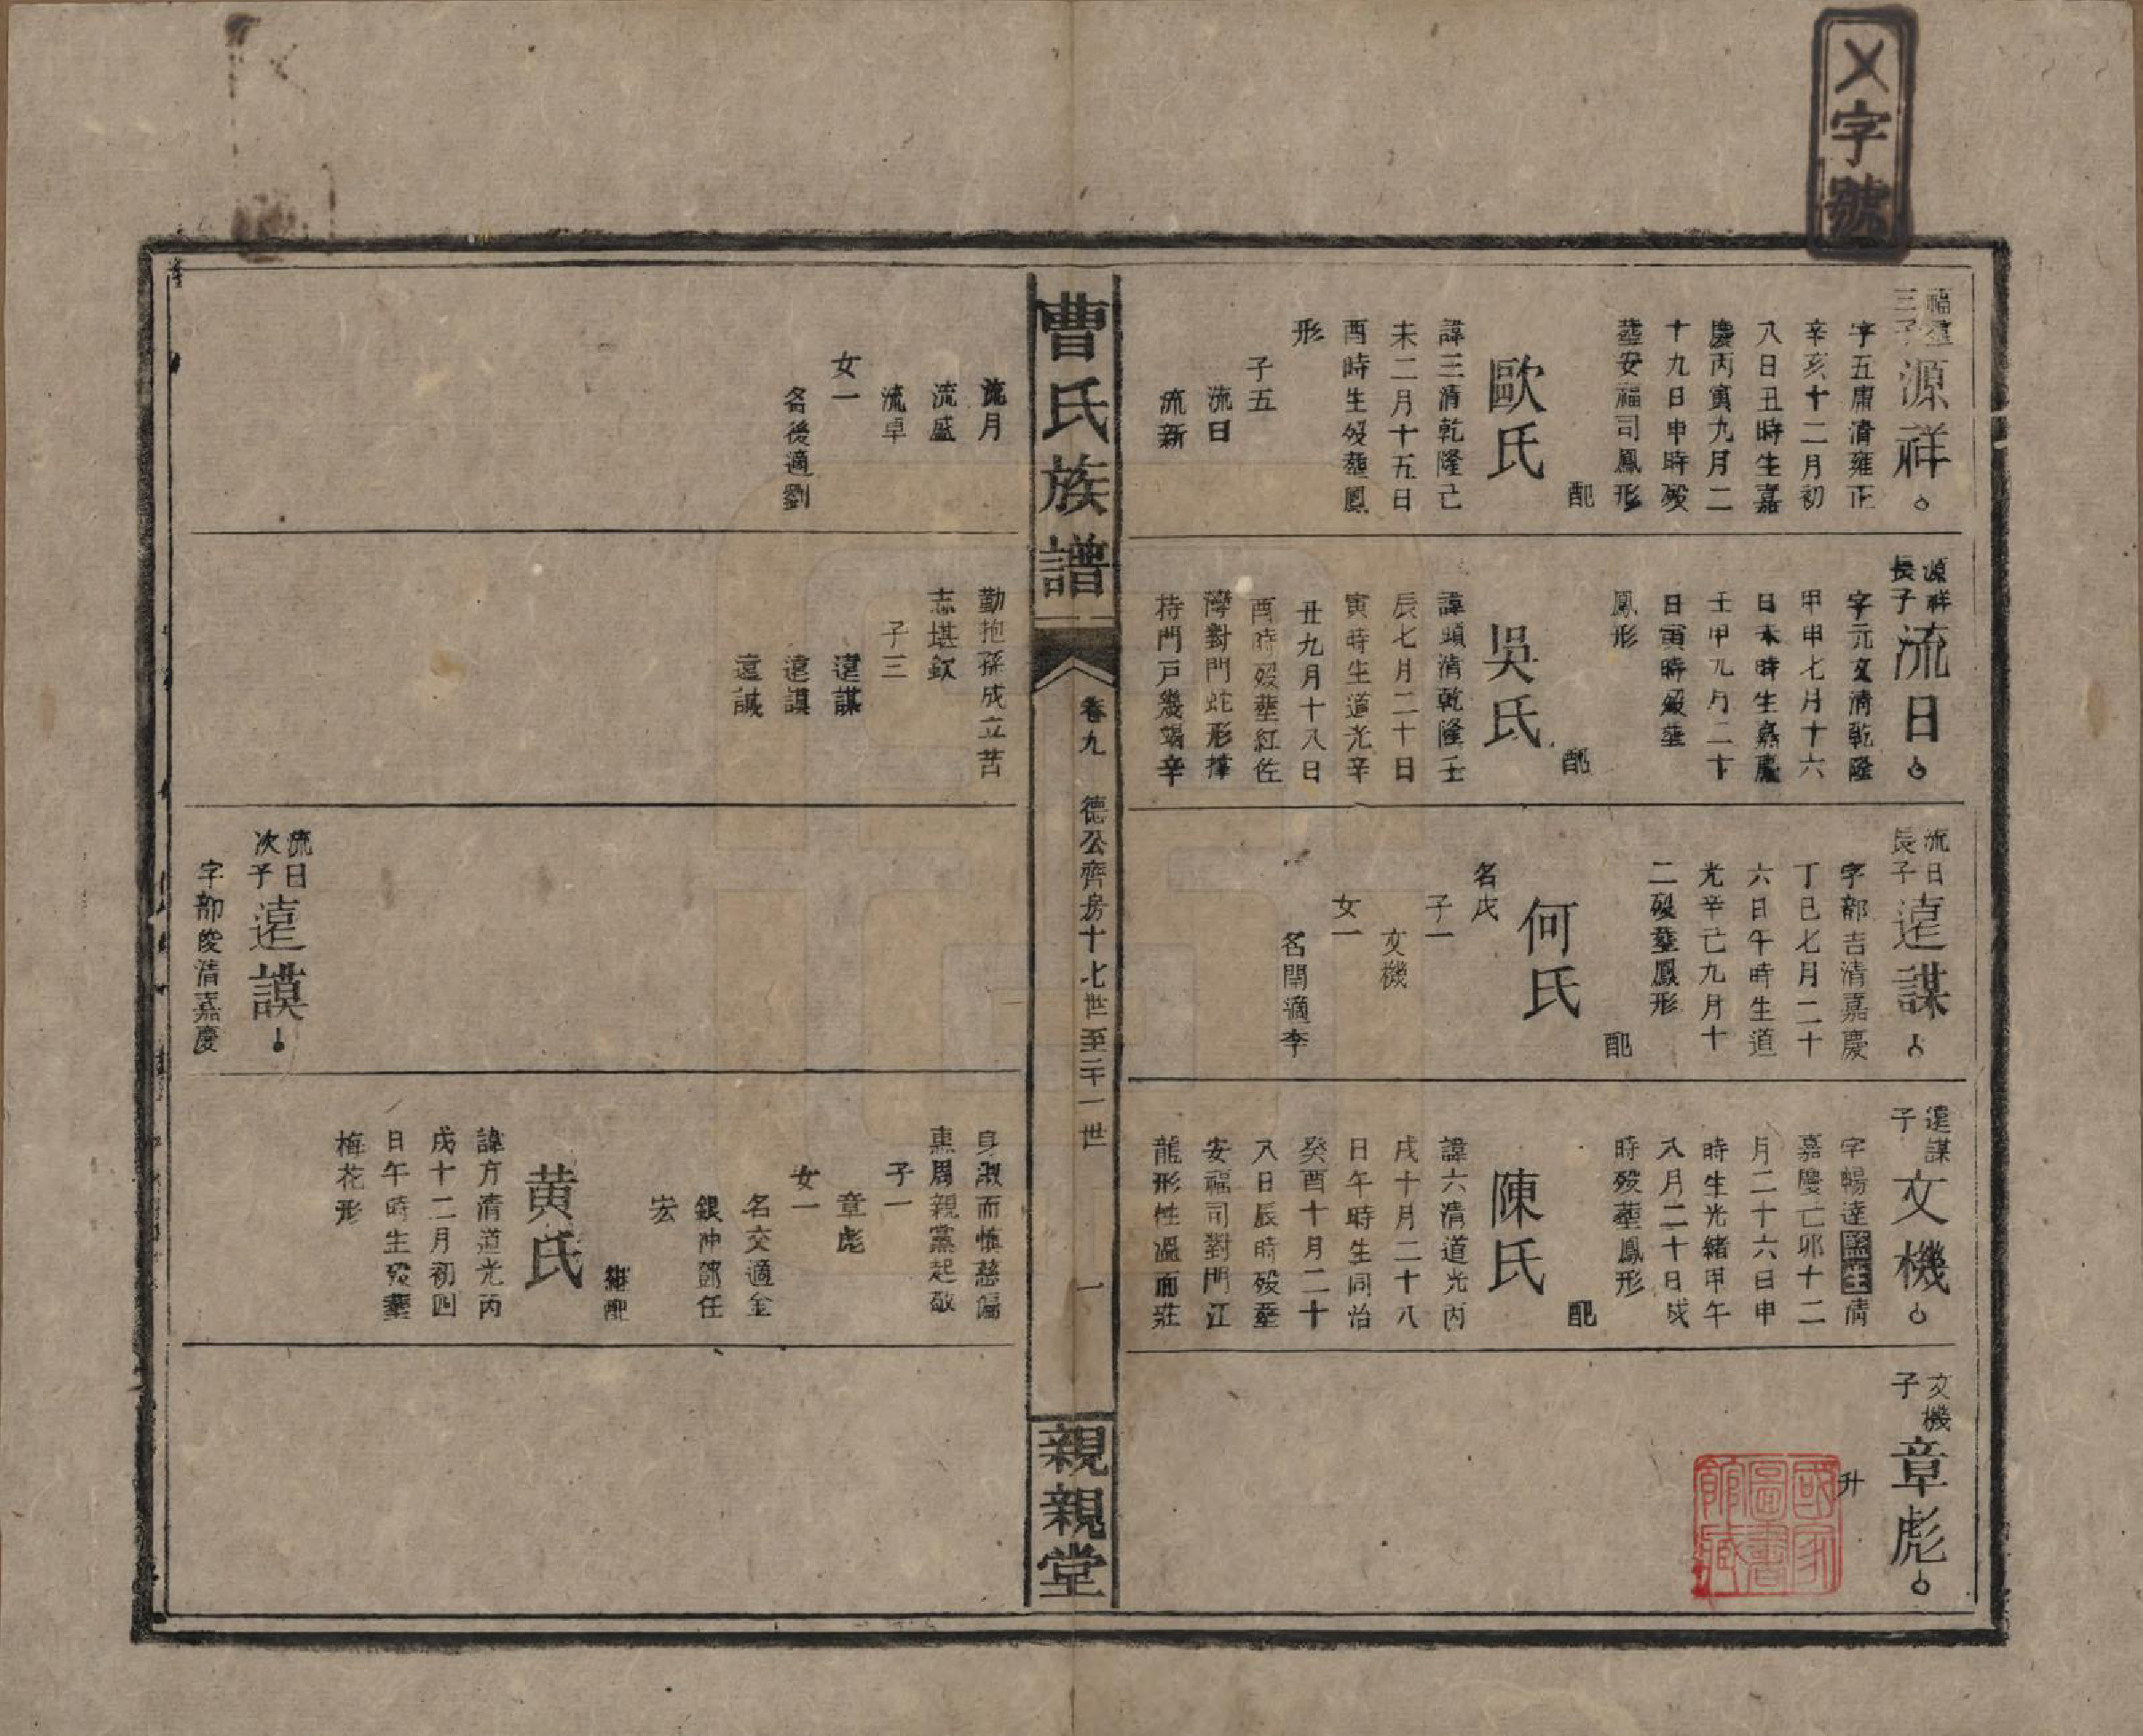 乂字號
福壟
三子
源祥
字五庸清雍正
辛亥十二月初
八日丑時生嘉
慶丙寅九月二
十九日申時歿
塟安福司鳳形
配
歐氏
諱三清乾隆己
未二月十五日
酉時生歿塟鳳
形
子五
流日
流新
源祥
長子
流日
字元文清乾隆
甲申七月十六
日未時生嘉慶
壬申九月二十
日寅時歿塟
鳳形
配
吳氏
諱頭清乾隆壬
辰七月二十日
寅時生道光辛
丑九月十八日
酉時歿塟紅佐
灣對門蛇形
持門戸幾竭辛
流日
長子
遠謀
字部吉清嘉慶
丁巳七月二十
六日午時生道
光辛己九月十
二歿塟鳳形
配
何氏
名戊
子一
文機
女一
名閏適李
遠謀
子
文機
字暢達監生清
嘉慶己卯十二
月二十六日申
時生光緒甲午
八月二十日戌
時歿塟鳳形
配
陳氏
諱六清道光丙
戌十月二十八
日午時生同治
癸酉十月二十
八日辰時歿塟
安福司對門江
龍形性溫而莊
文機
子
章彪
升
國家圖書館藏
曹氏族譜
卷九
德公齊房十七世至二十一世
一
親親堂
流月
流盛
流卓
女一
名後適劉
勤抱孫成立苦
志堪欽
子三
遠謀
遠謨
遠誠
流日
次子
遠謨
字部陵清嘉慶
身淑而慎慈偏
惠周親黨起敬
子一
章彪
女一
名交適金
銀沖譚任
宏
繼配
黄氏
諱方清道光丙
戌十二月初四
日午時生歿塟
梅花形